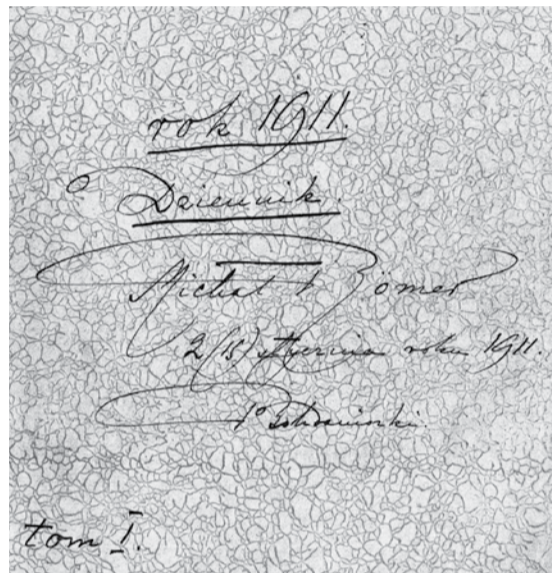 rok 1911.
Dziennik.
Michał Römer
2 (15) stycznia roku 1911.
tom I.